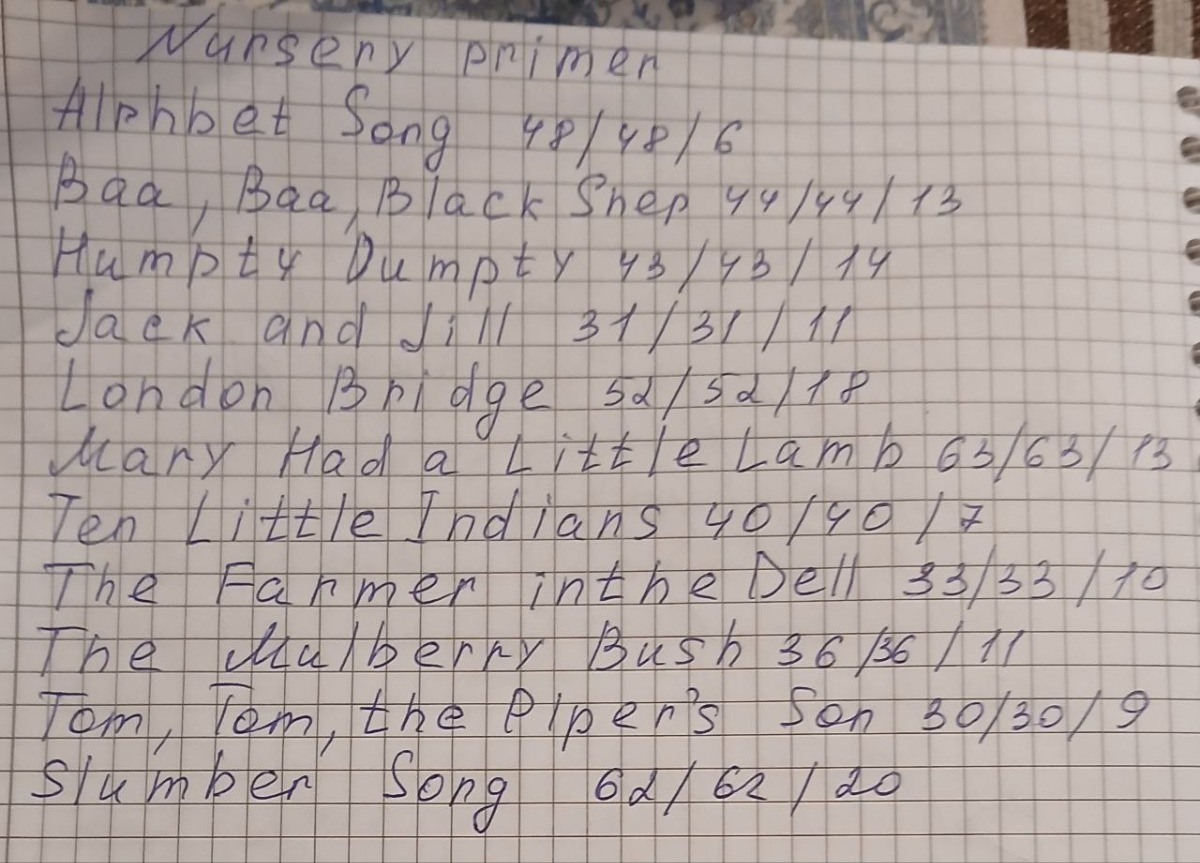 Nursery primer
Alphbet Song 48/48/6
Baa, Baa, Black Shep 44/44/13
Humpty Dumpty 43/43/14
Jack and Jill 31/31/11
London Bridge 52/52/18
Mary Had a Little Lamb 63/63/13
Ten Little Indians 40/40/7
The Farmer inthe Dell 33/33/10
The Mulberry Bush 36/36/11
Tom, Tom, the Piper's Son 30/30/9
Slumber Song 62/62/20